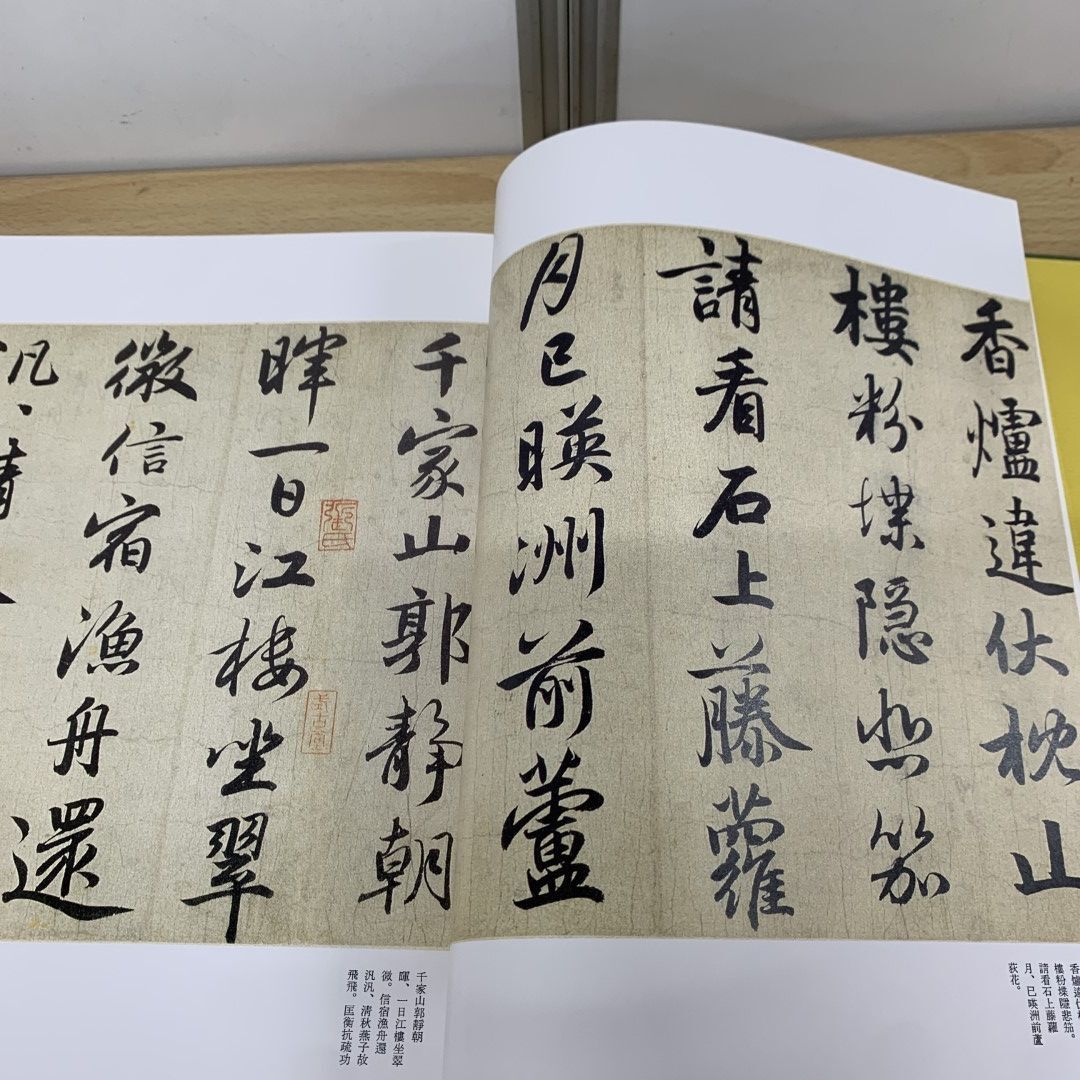 香爐違伏枕山
樓粉堞隱悲笳
請看石上藤蘿
月已暎洲前蘆
千家山郭靜朝
暉一日江樓坐翠
微信宿漁舟還
汎、清
香爐違伏
樓粉堞隱悲笳。
請看石上藤蘿
月、已暎洲前蘆
荻花。
千家山郭靜朝
暉、一日江樓坐翠
微。信宿漁舟還
汎汎、清秋燕子故
飛飛。匡衡抗疏功